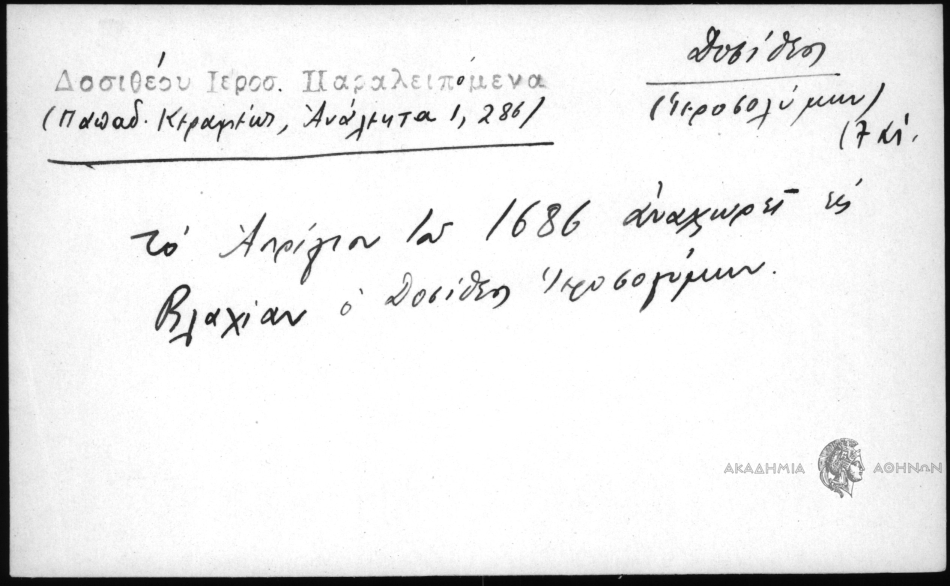 Δοσίθεος
(Ἱεροσολύμων)
(17 αἰ.
Δοσιθέου Ιεροσ. Παραλειπόμενα
(Παπαδ. Κεραμέως, Ἀνάλεκτα 1, 286)
τό Ἀπρίλιον τοῦ 1686 ἀναχωρεῖ εἰς
Βλαχίαν ὁ Δοσίθεος Ἱεροσολύμων.
ΑΚΑΔΗΜΙΑ ΑΘΗΝΩΝ